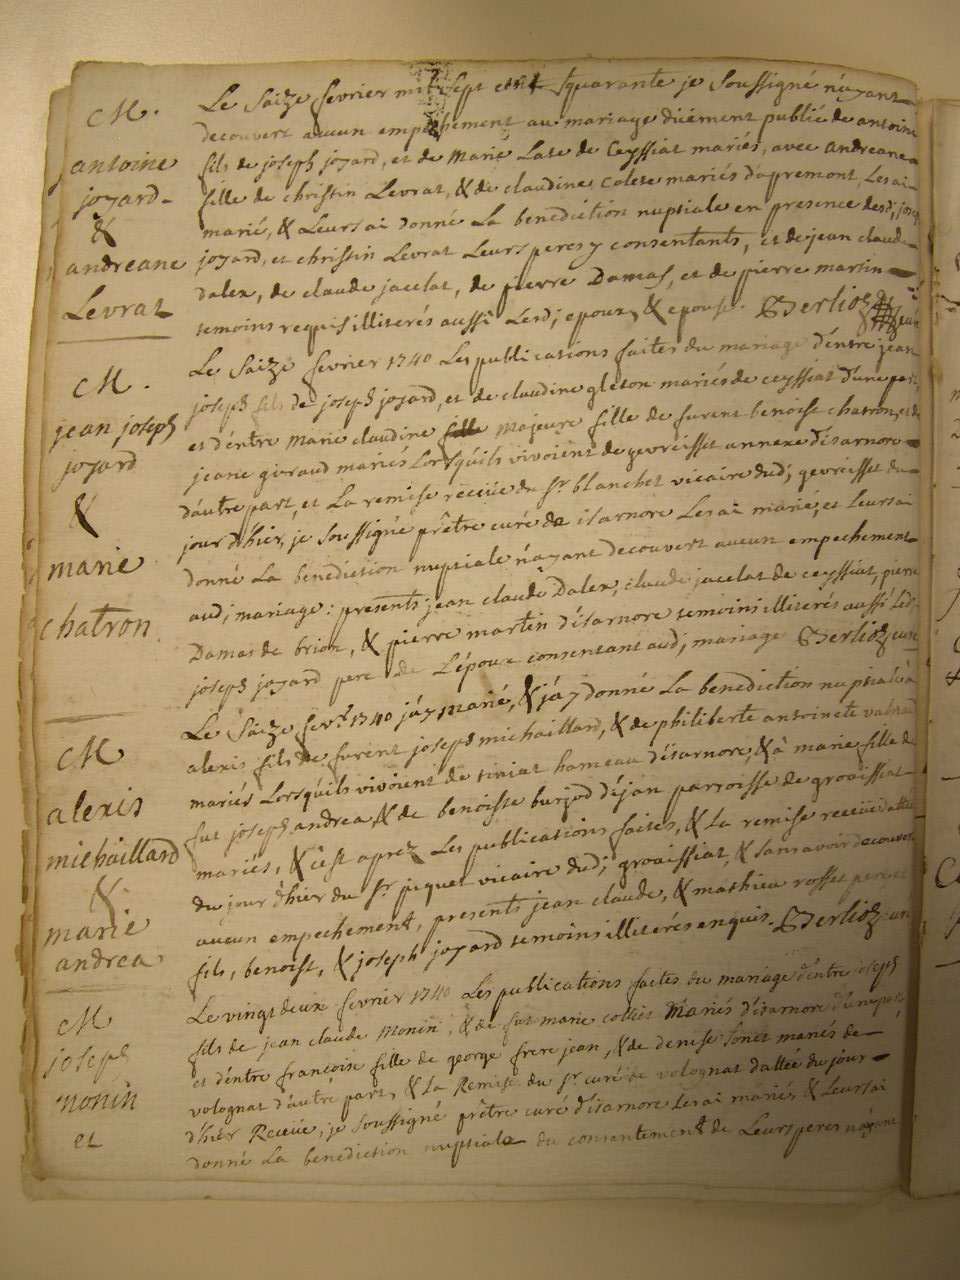 M.
antoine
joyard
&
andreane
Levrat
Le Saize fevrier mil Sept cent quarante je Soussigné n'ayant
decouvert aucun empechement au mariage düement publié de antoine
fils de joseph joyard, et de Marie Late de Ceyssiat mariés, avec andreane
fille de christin Levrat, & de claudine Colete mariés dapremont, Les ai
marié, & Leurs ai donné La benediction nuptiale en presence desd; joseph
joyard, et christin Levrat Leurs peres y consentants, et de jean claude
Dalex, de claude jacelat, de pierre Damas, et de pierre martin
temoins requis illiterés aussi Lesd; epoux, & epouse. Berlioz curé
M.
jean joseph
joyard
&
marie
chatron
Le Saize fevrier 1740 Les publications faites du mariage d'entre jean
joseph fils de joseph joyard, et de claudine gleton mariés de ceyssiat d'une part,
et d'entre Marie claudine majeure fille de furent benoist chatron, et de
jeane giraud mariés Lorsqúils vivoient de gevreisset annexe d'isarnore
d'autre part, et La remise receüe du Sr. blanchet vicaire dud; gevreisset du
jour d'hier, je Soussigné prêtre curé de isarnore Les ai marié, et Leurs ai
donné La benediction nuptiale n'ayant decouvert aucun empechement
aud; mariage: presents jean claude Dalex, claude jacelat de ceyssiat, pierre
Damas de brion, & pierre martin d'isarnore temoins illiterés aussi Led;
joseph joyard pere de L'époux consentant aud; mariage Berlioz curé
M
alexis
michaillard
&
marie
andrea
Le Saize fevr. 1740 j'ay marié, & j'ay donné La benediction nuptiale à
alexis fils de furent joseph michaillard, & de philiberte antoinete
mariés Lorsqúils vivoient de tiniat hameau d'isarnore, & à marie fille de
fut joseph andrea, & de benoiste burjod d'éjan parroisse de groissiat
mariés, & c'est aprez Les publications faites, & La remise receüe dattée
du jour d'hier du Sr. piquet vicaire dud; groissiat, & Sans avoir decouvert
aucun empechement, presents jean claude, & mathieu rosset pere, et
fils, benoist, & joseph joyard temoins illiterés enquis. Berlioz curé
M
joseph
monin
et
Le vingt deux fevrier 1740 Les publications faites du mariage d'entre joseph
fils de jean claude Monin, & de fut marie collet Mariés d'isarnore d'une part,
et d'entre francoise fille de george frere jean, & de denise Sonet mariés de
volognat d'autre part, & La Remise du Sr curé de volognat dattée du jour
d'hier Receüe, je Soussigné prêtre curé d'isarnore Les ai mariés & Leurs ai
donné La benediction nuptiale du consentement de Leurs peres n'ayant